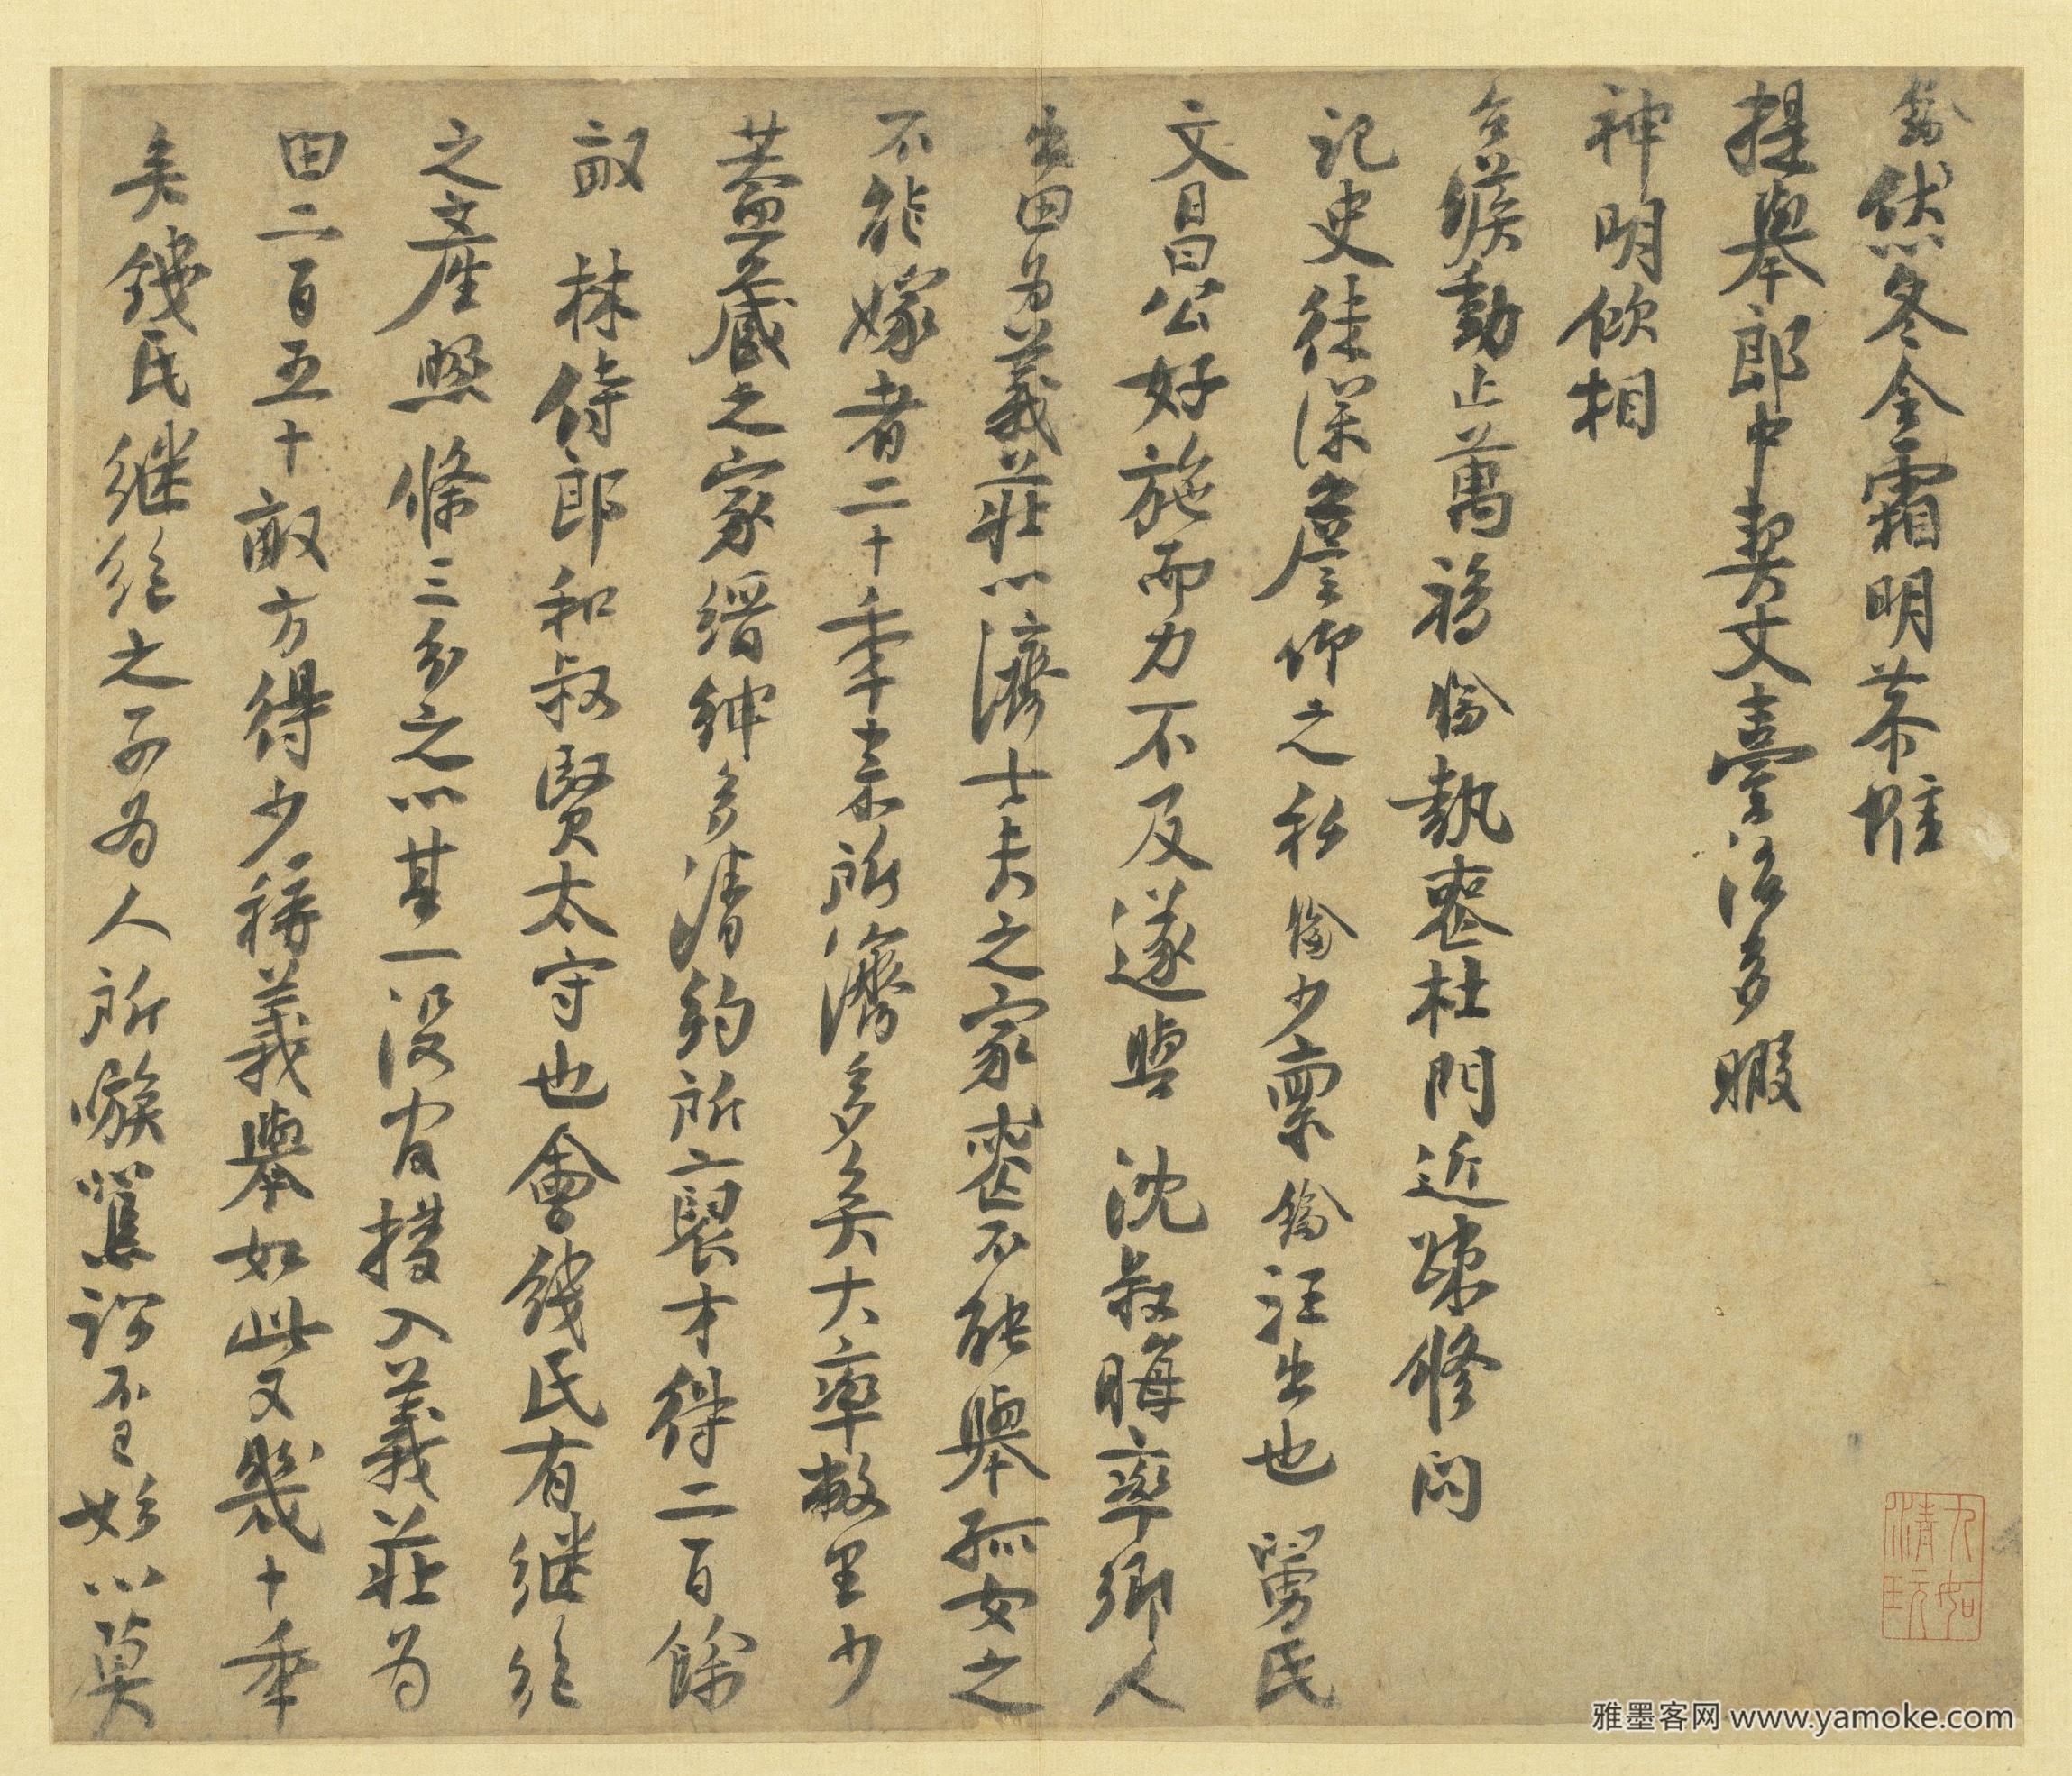 伏以冬令霜明恭惟
提舉郎中契丈臺治多暇
神明欣相
台候動止萬福 執喪杜門近疎修問
記史徒深詹仰之私 少稟 汪出也 舅氏
文昌公好施而力不及遂與 沈叔晦率鄉人
出田為義莊以濟士夫之家喪不能舉孤女之
不能嫁者二十年來所濟多矣大率敝里少
蓋藏之家縉紳多清約所裒才得二百餘
畝 林侍郎和叔賢太守也會錢氏有繼絕
之產照條三分之以其一沒官撥入義莊為
田二百五十畝方得少稱義舉如此又幾十年
矣錢氏繼絕之子為人所嗾駕詞不已始以莫
九如清玩
雅墨客网 www.yamoke.com